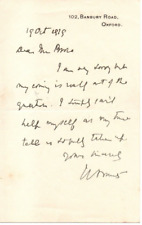 102, BANBURY ROAD,
OXFORD.
19 Oct 1919
Dear Mr
I am very sorry but
my coming is really out of the
question. I simply can't
help myself as my time
table is already taken up
Yours sincerely